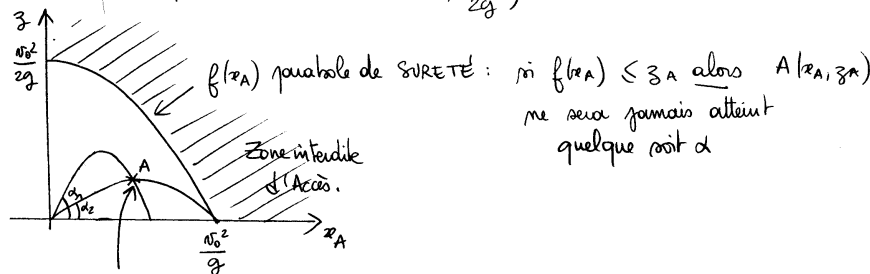 2g
z
v₀²
2g
f(x_A) parabole de SURETÉ : si f(x_A) ≤ z_A alors A(x_A, z_A)
ne sera jamais atteint
quelque soit α
Zone interdite
d'Accès.
A
α₁
α₂
v₀²
g
x_A